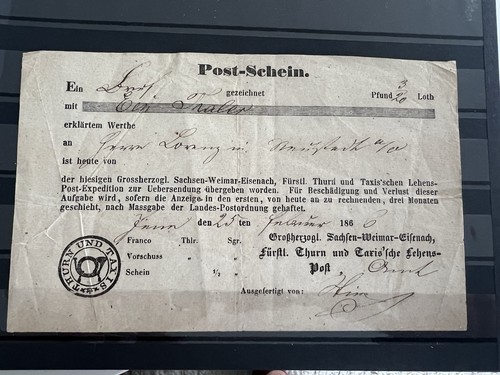 Post-Schein.
Ein Brief gezeichnet Pfund 3/20 Loth
mit Thaler
erklärtem Werthe
an Herrn Lorenz in Neustadt a/O
ist heute von
der hiesigen Grossherzogl. Sachsen-Weimar-Eisenach, Fürstl. Thurn und Taxis'schen Lehens-
Post-Expedition zur Uebersendung übergeben worden. Für Beschädigung und Verlust dieser
Aufgabe wird, sofern die Anzeige in den ersten, von heute an zu rechnenden, drei Monaten
geschieht, nach Massgabe der Landes-Postordnung gehaftet.
Jena den 25 Februar 186
Franco Thlr. Sgr. Großherzogl. Sachsen-Weimar-Eisenach,
Vorschuss „ „ Fürstl. Thurn und Taxis'sche Lehens-
Schein „ ½ „ Post „ Amt
Ausgefertigt von:
THURN UND TAXIS